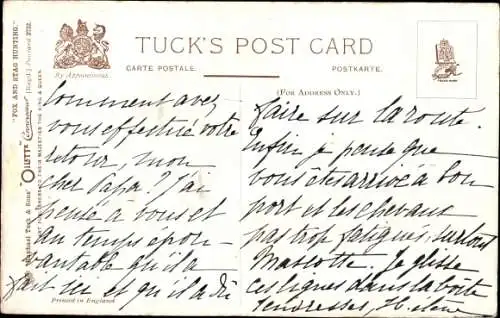 TUCK'S POST CARD
CARTE POSTALE.
POSTKARTE.
By Appointment.
(FOR ADDRESS ONLY.)
"FOX AND STAG HUNTING."
Raphael Tuck & Sons' "OILETTE" [Regd.] Postcard
ART PUBLISHERS TO THEIR MAJESTIES THE KING & QUEEN.
Comment avez
vous effectué votre
retour, mon
cher Papa? J'ai
pensé à vous et
au temps épou-
vantable qu'il a
fait ici et qu'il a dû
Printed in England
faire sur la route.
Enfin je pense que
vous êtes arrivé à bon
port et les chevaux
pas trop fatigués, surtout
Mascotte. Je glisse
ces lignes dans la boîte
Tendresses, Hélène